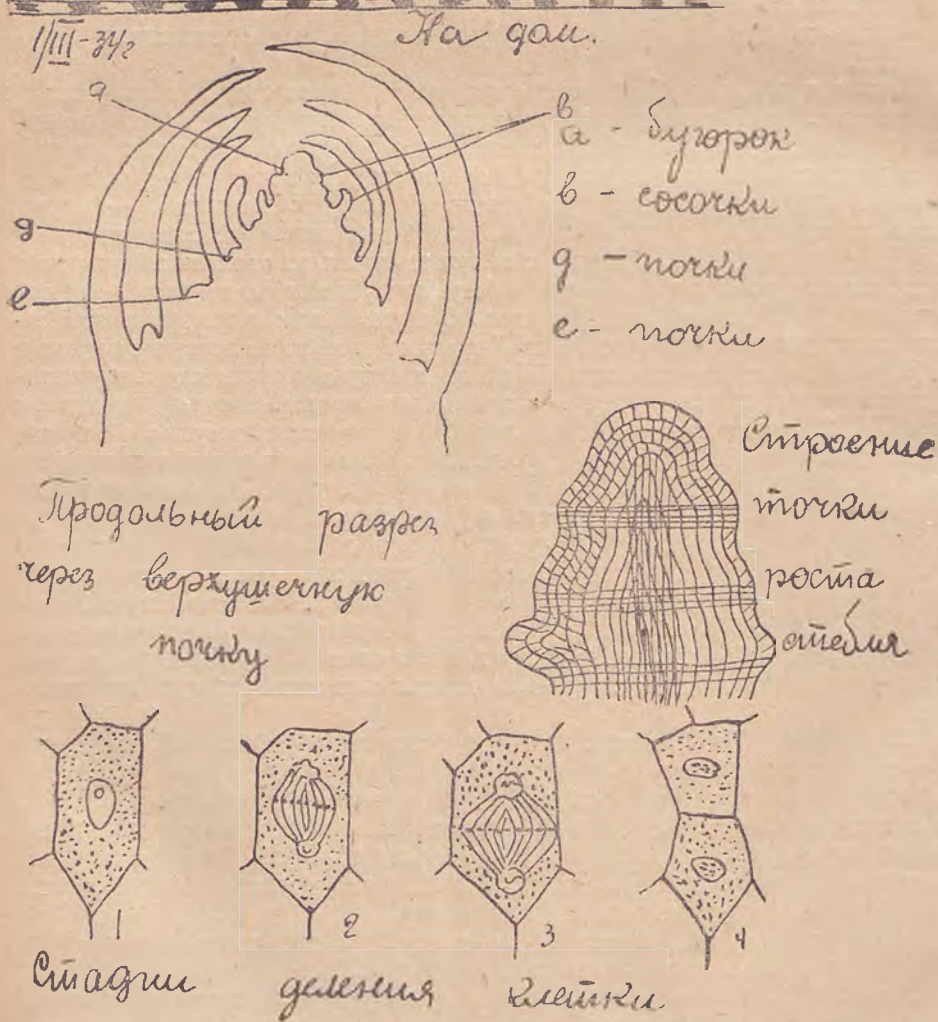 1/III-34г
На дом.
а
в
д
е
а - бугорок
в - сосочки
д - почки
е - почки
Продольный разрез
через верхушечную
почку
Строение
точки
роста
стебля
1
2
3
4
Стадии деления клетки